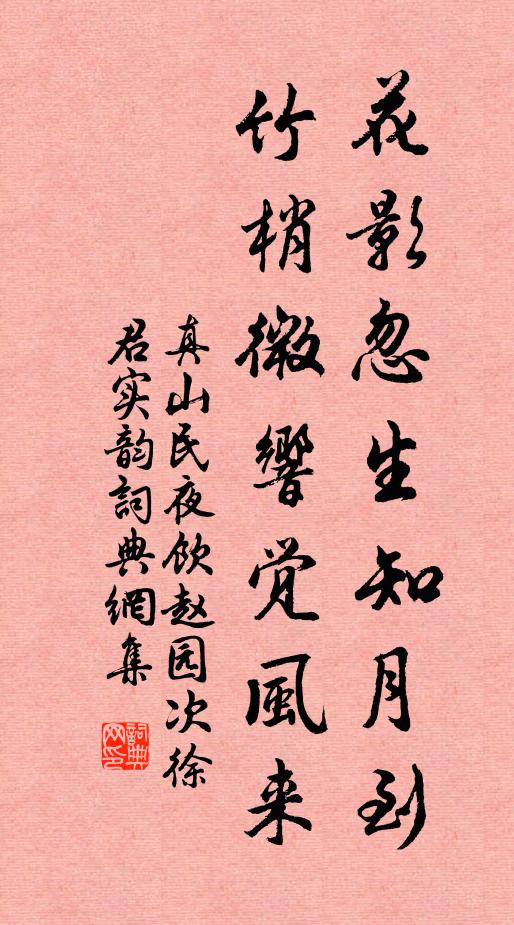 花影忽生知月到
竹梢微響觉風来
真山民夜饮赵园次徐
君实韵詞典網集
詞典
网印